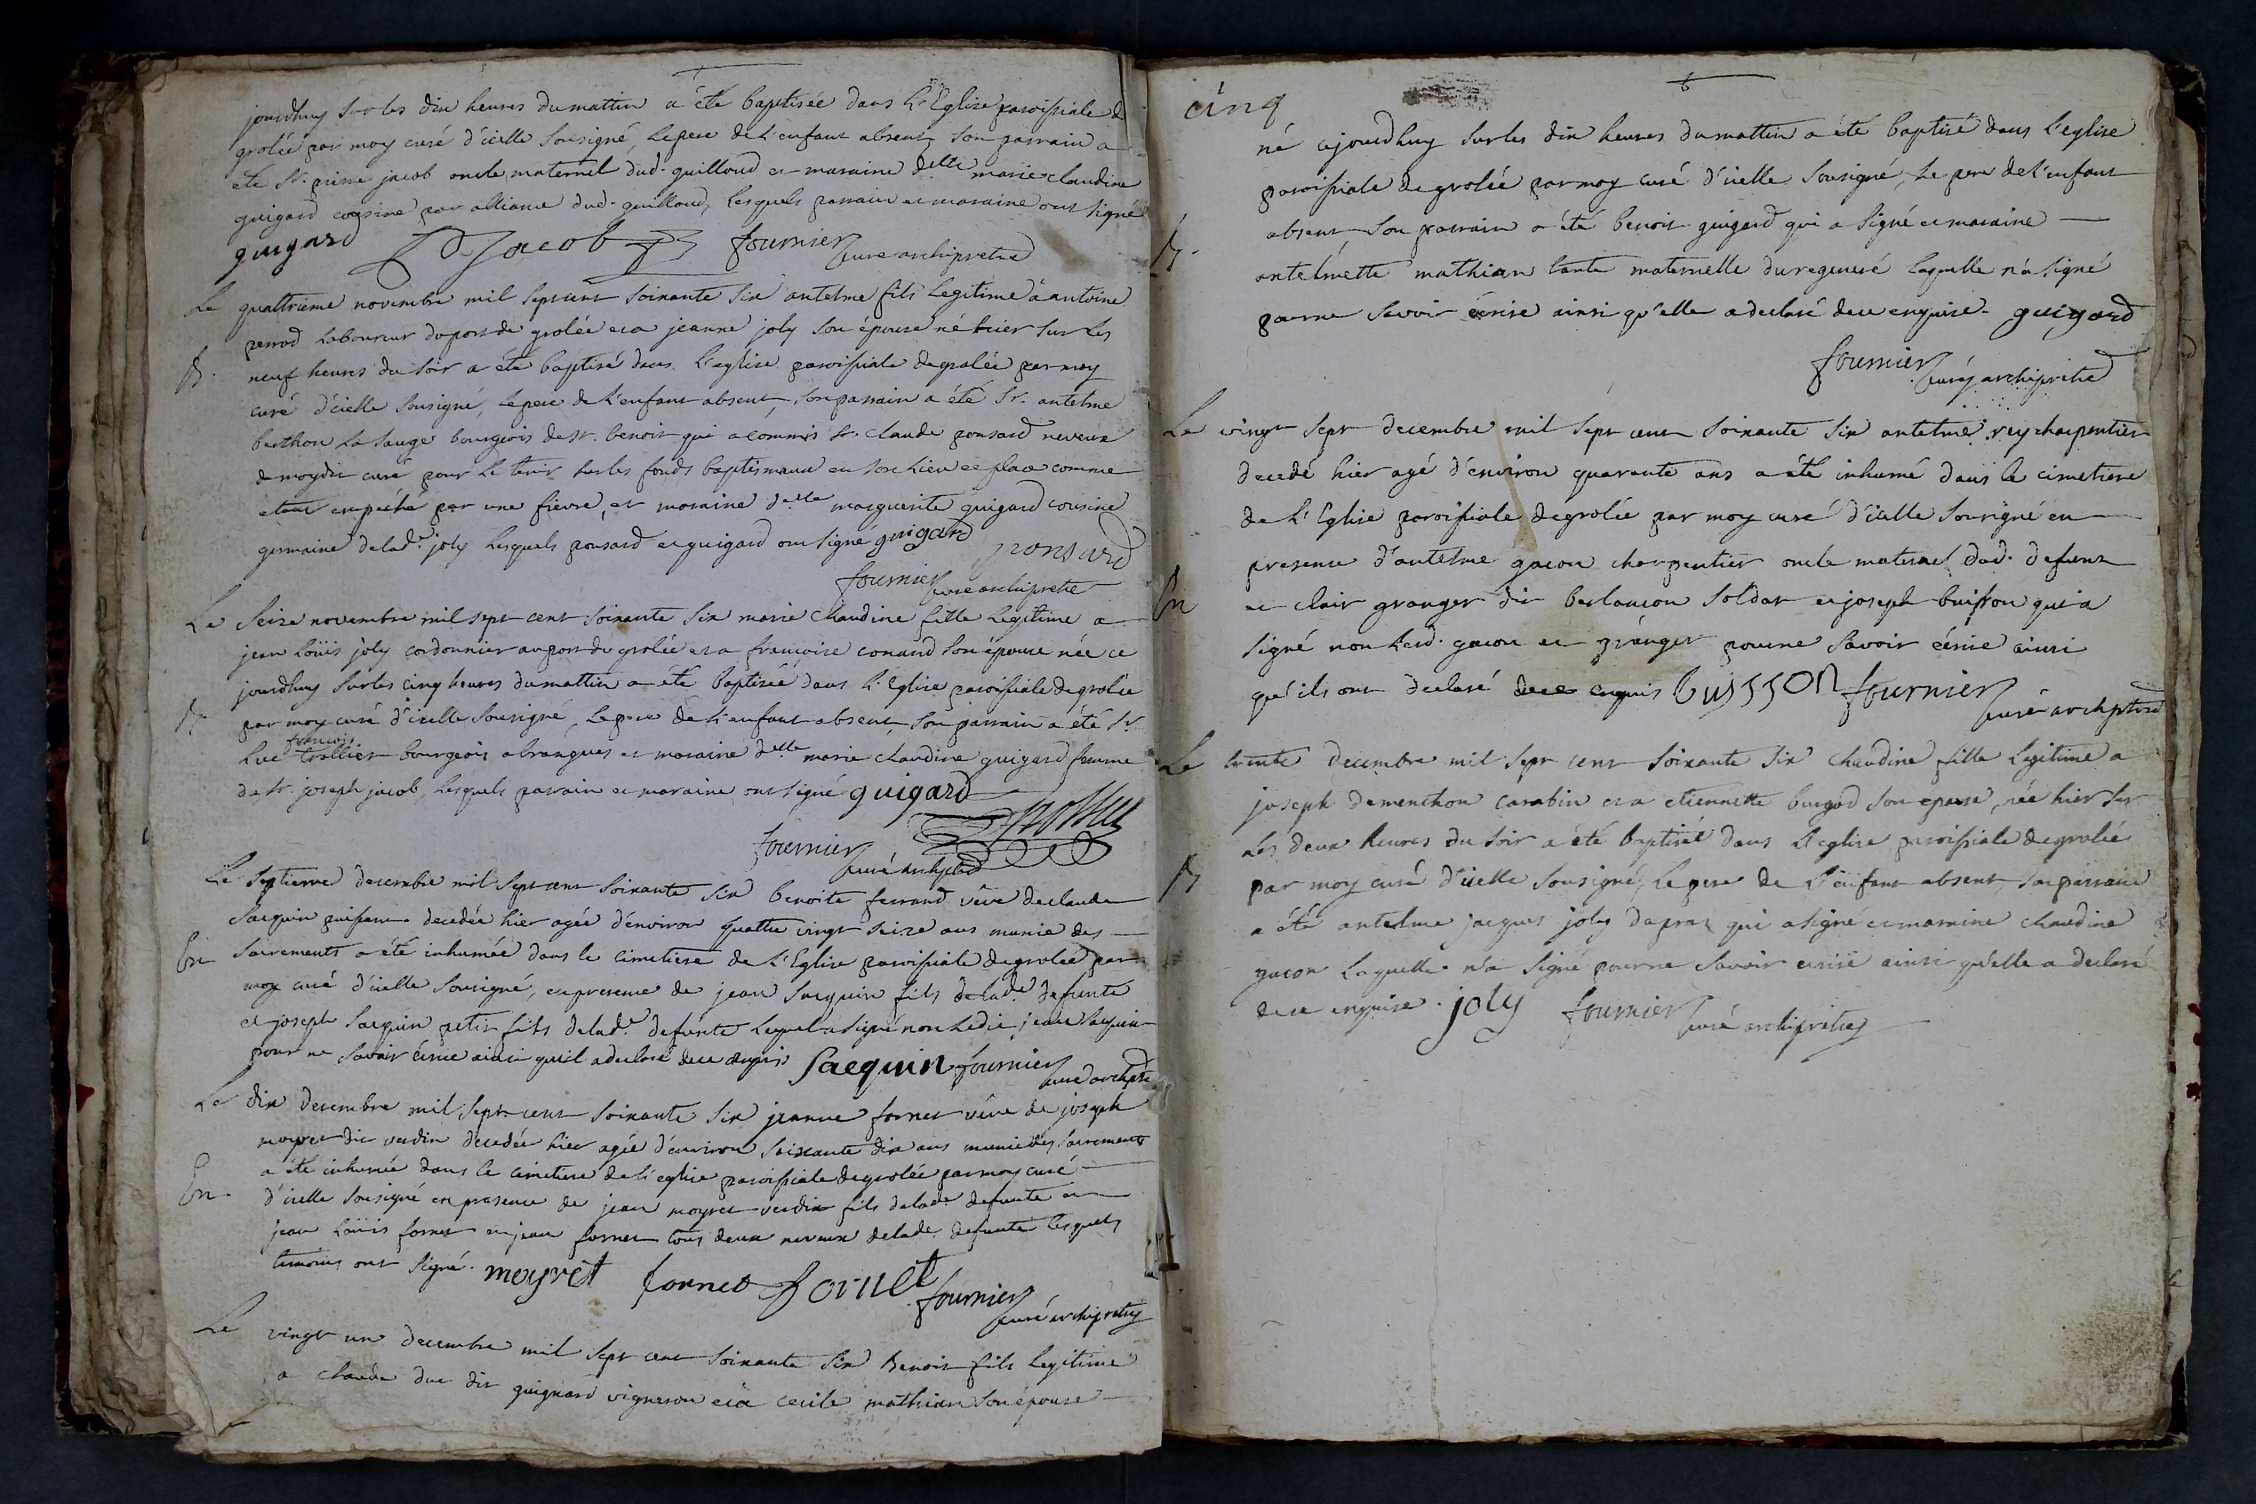 jourdhuy sur les dix heures du mattin a été baptisée dans l'Eglise paroissiale de
grolée par moy curé d'icelle sousigné, le pere de l'enfant absent, son parrain a
été Sr. pierre jacob oncle maternel dud. guilloud et maraine delle marie claudine
guigard cousine par alliance dud. guilloud, lesquels parrain et maraine ont signé
guigard Jacob fournier curé archipretre
Le quattrieme novembre mil sept cent soixante six antelme fils legitime à antoine
perrod laboureur du port de grolée et a jeanne joly son épouse né hier sur les
B. neuf heures du soir a été baptisé dans l'eglise paroissiale de grolée par moy
curé d'icelle sousigné, le pere de l'enfant absent, son parrain a été Sr. antelme
berthon la sauge bourgeois de st. benoit qui a commis Sr. claude ponsard neveux
de moydit curé pour le tenir sur les fonds baptismaux en son lieu et place comme
etant empeché par une fievre, et maraine delle marguerite guigard cousine
germaine de lade. joly lesquels ponsard et guigard ont signé guigard ponsard
fournier curé archipretre
Le seize novembre mil sept cent soixante six marie claudine fille legitime a
jean loüis joly cordonnier au port de grolée et a francoise conand son épouse née ce
jourdhuy sur les cinq heures du mattin a été baptisée dans l'Eglise paroissiale de grolée
B. par moy curé d'icelle sousigné, le pere de l'enfant absent, son parrain a été Sr.
francois
Luc trollier bourgeois a brangues et maraine delle marie claudine guigard femme
de Sr. joseph jacob, lesquels parrain et maraine ont signé guigard
fournier curé archiptre
Le septieme decembre mil sept cent soixante six benoite ferrand vêve de claude
Sacquin decedée hier agée d'environ quattre vingt seize ans munie des
En sacrements a été inhumée dans le cimetiere de l'Eglise paroissiale de grolée par
moy curé d'icelle sousigné, en presence de jean Sacquin fils de lade. defunte
et joseph Sacquin petit fils de lade. defunte lequel a signé non ledit jean Sacquin
pour ne savoir écrire ainsi qu'il a declaré de ce enquis Sacquin fournier curé archiptre
Le dix decembre mil sept cent soixante six jeanne fornet vêve de joseph
moyret dit verdin decedée hier agée d'environ soixante dix ans munie des sacrements
a été inhumée dans le cimetiere de l'eglise paroissiale de grolée par moy curé
En. d'icelle sousigné en presence de jean moyret verdin fils de lade. defunte et
jean loüis fornet et jean fornet tous deux neveux de lade. defunte lesquels
temoins ont signé. moyret fornet fornet fournier curé archipretre
Le vingt un decembre mil sept cent soixante six Benoit fils legitime
a claude duc dit guignard vigneron et à cecile mathian son épouse
cinq
né cejourdhuy sur les dix heures du mattin a été baptisé dans l'eglise
paroissiale de grolée par moy curé d'icelle sousigné, le pere de l'enfant
B. absent, son parrain a été benoit guigard qui a signé et maraine
antelmette mathian tante maternelle du regeneré laquelle n'a signé
pour ne savoir écrire ainsi qu'elle a declaré de ce enquise. guigard
fournier curé archipretre
Le vingt sept decembre mil sept cent soixante six antelme rey charpentier
decedé hier agé d'environ quarante ans a été inhumé dans le cimetiere
de l'Eglise paroissiale de grolée par moy curé d'icelle sousigné en
presence d'antelme gacon charpentier oncle maternel dud. defunt
En et clair granger dit berlancon soldat et joseph buisson qui a
signé non lesd. gacon et granger pour ne savoir écrire ainsi
qu'ils ont declaré de ce enquis buisson fournier curé archiptre
Le trente decembre mil sept cent soixante six claudine fille legitime a
joseph dementhon carabin et a etiennette burgod son epouse, née hier sur
les deux heures du soir a été baptisée dans l'eglise paroissiale de grolée
B par moy curé d'icelle sousigné, le pere de l'enfant absent, son parrain
a été antelme jacques joly dupraz qui a signé et maraine claudine
gacon laquelle n'a signé pour ne savoir ecrire ainsi qu'elle a declaré
de ce enquise. joly fournier curé archipretre